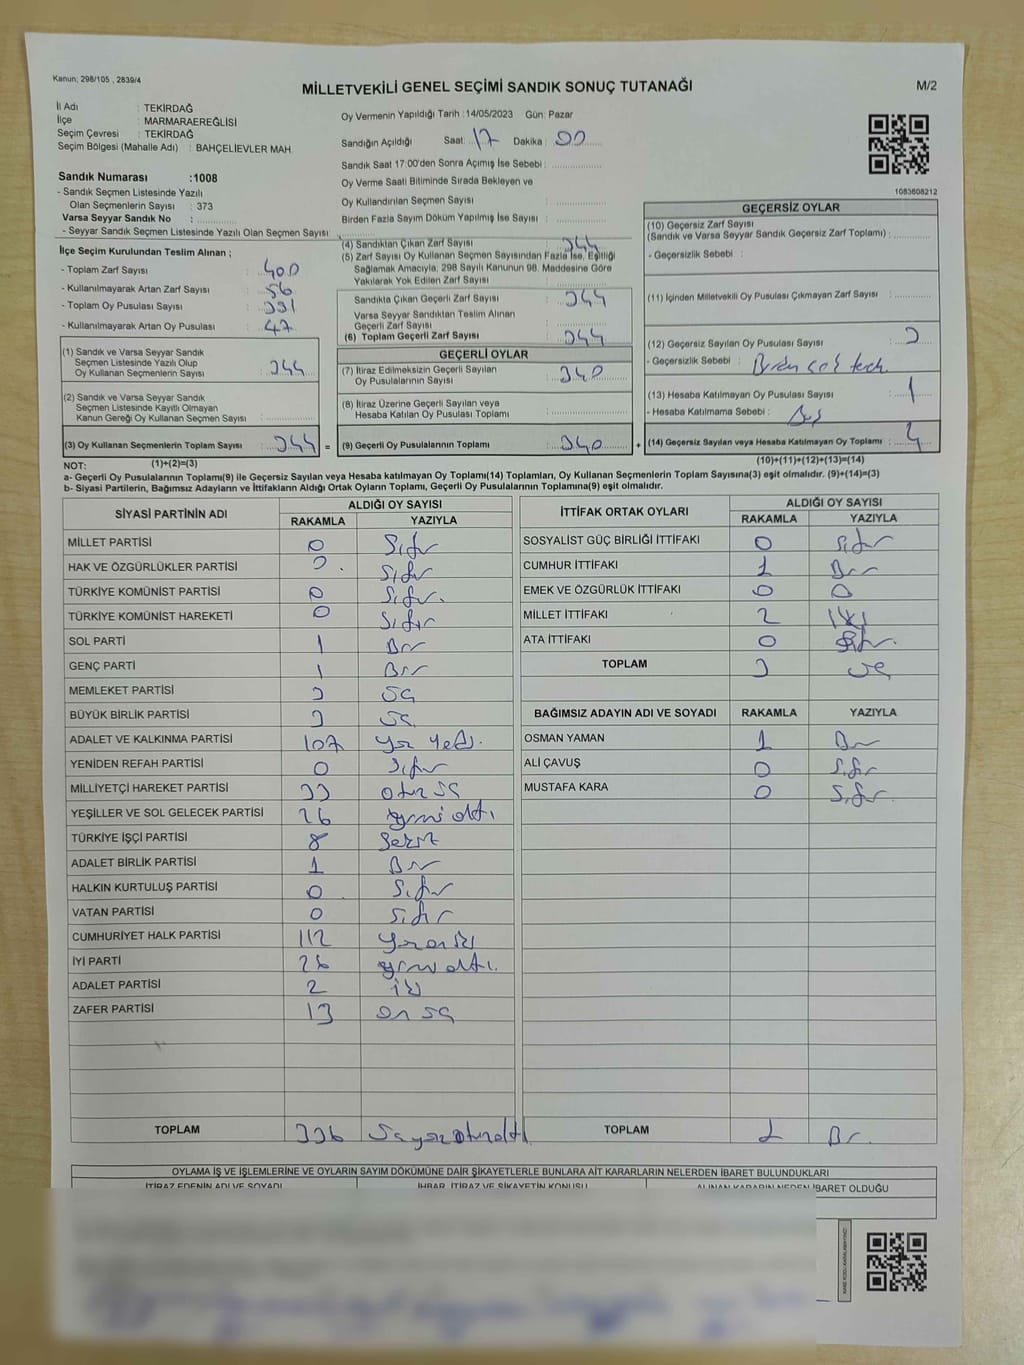 Kanun; 298/105 , 2839/4
MİLLETVEKİLİ GENEL SEÇİMİ SANDIK SONUÇ TUTANAĞI
M/2
İl Adı : TEKİRDAĞ
İlçe : MARMARAEREĞLİSİ
Seçim Çevresi : TEKİRDAĞ
Seçim Bölgesi (Mahalle Adı) : BAHÇELİEVLER MAH.
Sandık Numarası :1008
- Sandık Seçmen Listesinde Yazılı
Olan Seçmenlerin Sayısı : 373
Varsa Seyyar Sandık No :
- Seyyar Sandık Seçmen Listesinde Yazılı Olan Seçmen Sayısı :
Oy Vermenin Yapıldığı Tarih :14/05/2023 Gün: Pazar
Sandığın Açıldığı Saat: 17 Dakika : 00
Sandık Saat 17:00'den Sonra Açımış İse Sebebi :
Oy Verme Saati Bitiminde Sırada Bekleyen ve
Oy Kullandırılan Seçmen Sayısı :
Birden Fazla Sayım Döküm Yapılmış İse Sayısı :
1083608212
İlçe Seçim Kurulundan Teslim Alınan ;
- Toplam Zarf Sayısı : 400
- Kullanılmayarak Artan Zarf Sayısı : 56
- Toplam Oy Pusulası Sayısı : 391
- Kullanılmayarak Artan Oy Pusulası : 47
(1) Sandık ve Varsa Seyyar Sandık
Seçmen Listesinde Yazılı Olup
Oy Kullanan Seçmenlerin Sayısı : 344
(2) Sandık ve Varsa Seyyar Sandık
Seçmen Listesinde Kayıtlı Olmayan
Kanun Gereği Oy Kullanan Seçmen Sayısı :
(3) Oy Kullanan Seçmenlerin Toplam Sayısı : 344 =
(4) Sandıktan Çıkan Zarf Sayısı : 344
(5) Zarf Sayısı Oy Kullanan Seçmen Sayısından Fazla İse, Eşitliği
Sağlamak Amacıyla, 298 Sayılı Kanunun 98. Maddesine Göre
Yakılarak Yok Edilen Zarf Sayısı :
Sandıkta Çıkan Geçerli Zarf Sayısı : 344
Varsa Seyyar Sandıktan Teslim Alınan
Geçerli Zarf Sayısı :
(6) Toplam Geçerli Zarf Sayısı : 344
GEÇERLİ OYLAR
(7) İtiraz Edilmeksizin Geçerli Sayılan
Oy Pusulalarının Sayısı : 340
(8) İtiraz Üzerine Geçerli Sayılan veya
Hesaba Katılan Oy Pusulası Toplamı :
(9) Geçerli Oy Pusulalarının Toplamı : 340 +
GEÇERSİZ OYLAR
(10) Geçersiz Zarf Sayısı
(Sandık ve Varsa Seyyar Sandık Geçersiz Zarf Toplamı) :
- Geçersizlik Sebebi :
(11) İçinden Milletvekili Oy Pusulası Çıkmayan Zarf Sayısı :
(12) Geçersiz Sayılan Oy Pusulası Sayısı : 3
- Geçersizlik Sebebi :
(13) Hesaba Katılmayan Oy Pusulası Sayısı : 1
- Hesaba Katılmama Sebebi : Boş
(14) Geçersiz Sayılan veya Hesaba Katılmayan Oy Toplamı : 4
NOT: (1)+(2)=(3) (10)+(11)+(12)+(13)=(14)
a- Geçerli Oy Pusulalarının Toplamı(9) ile Geçersiz Sayılan veya Hesaba katılmayan Oy Toplamı(14) Toplamları, Oy Kullanan Seçmenlerin Toplam Sayısına(3) eşit olmalıdır. (9)+(14)=(3)
b- Siyasi Partilerin, Bağımsız Adayların ve İttifakların Aldığı Ortak Oyların Toplamı, Geçerli Oy Pusulalarının Toplamına(9) eşit olmalıdır.
SİYASİ PARTİNİN ADI ALDIĞI OY SAYISI
RAKAMLA YAZIYLA
MİLLET PARTİSİ 0 Sıfır
HAK VE ÖZGÜRLÜKLER PARTİSİ 0 Sıfır
TÜRKİYE KOMÜNİST PARTİSİ 0 Sıfır
TÜRKİYE KOMÜNİST HAREKETİ 0 Sıfır
SOL PARTİ 1 Bir
GENÇ PARTİ 1 Bir
MEMLEKET PARTİSİ 3 üç
BÜYÜK BİRLİK PARTİSİ 3 üç
ADALET VE KALKINMA PARTİSİ 107 yüz yedi
YENİDEN REFAH PARTİSİ 0 Sıfır
MİLLİYETÇİ HAREKET PARTİSİ 33 otuz üç
YEŞİLLER VE SOL GELECEK PARTİSİ 26 yirmi altı
TÜRKİYE İŞÇİ PARTİSİ 8 Sekiz
ADALET BİRLİK PARTİSİ 1 Bir
HALKIN KURTULUŞ PARTİSİ 0 Sıfır
VATAN PARTİSİ 0 Sıfır
CUMHURİYET HALK PARTİSİ 112 yüz on iki
İYİ PARTİ 26 yirmi altı
ADALET PARTİSİ 2 iki
ZAFER PARTİSİ 13 on üç
TOPLAM 336 üç yüz otuz altı
İTTİFAK ORTAK OYLARI ALDIĞI OY SAYISI
RAKAMLA YAZIYLA
SOSYALİST GÜÇ BİRLİĞİ İTTİFAKI 0 Sıfır
CUMHUR İTTİFAKI 1 Bir
EMEK VE ÖZGÜRLÜK İTTİFAKI 0 0
MİLLET İTTİFAKI 2 iki
ATA İTTİFAKI 0 Sıfır
TOPLAM 3 üç
BAĞIMSIZ ADAYIN ADI VE SOYADI RAKAMLA YAZIYLA
OSMAN YAMAN 1 Bir
ALİ ÇAVUŞ 0 Sıfır
MUSTAFA KARA 0 Sıfır
TOPLAM 1 Bir
OYLAMA İŞ VE İŞLEMLERİNE VE OYLARIN SAYIM DÖKÜMÜNE DAİR ŞİKAYETLERLE BUNLARA AİT KARARLARIN NELERDEN İBARET BULUNDUKLARI
İTİRAZ EDENİN ADI VE SOYADI İHBAR, İTİRAZ VE ŞİKAYETİN KONUSU ALINAN KARARIN NEDEN İBARET OLDUĞU